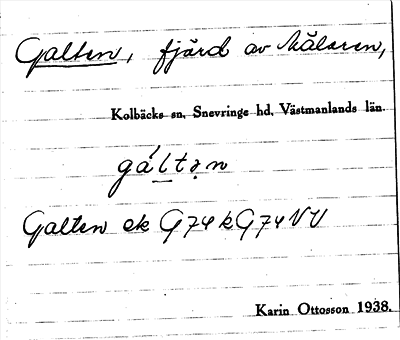 Galten, fjärd av Mälaren,
Kolbäcks sn, Snevringe hd, Västmanlands län.
gáltən
Galten ek G74kG74NV
Karin Ottosson 1938.